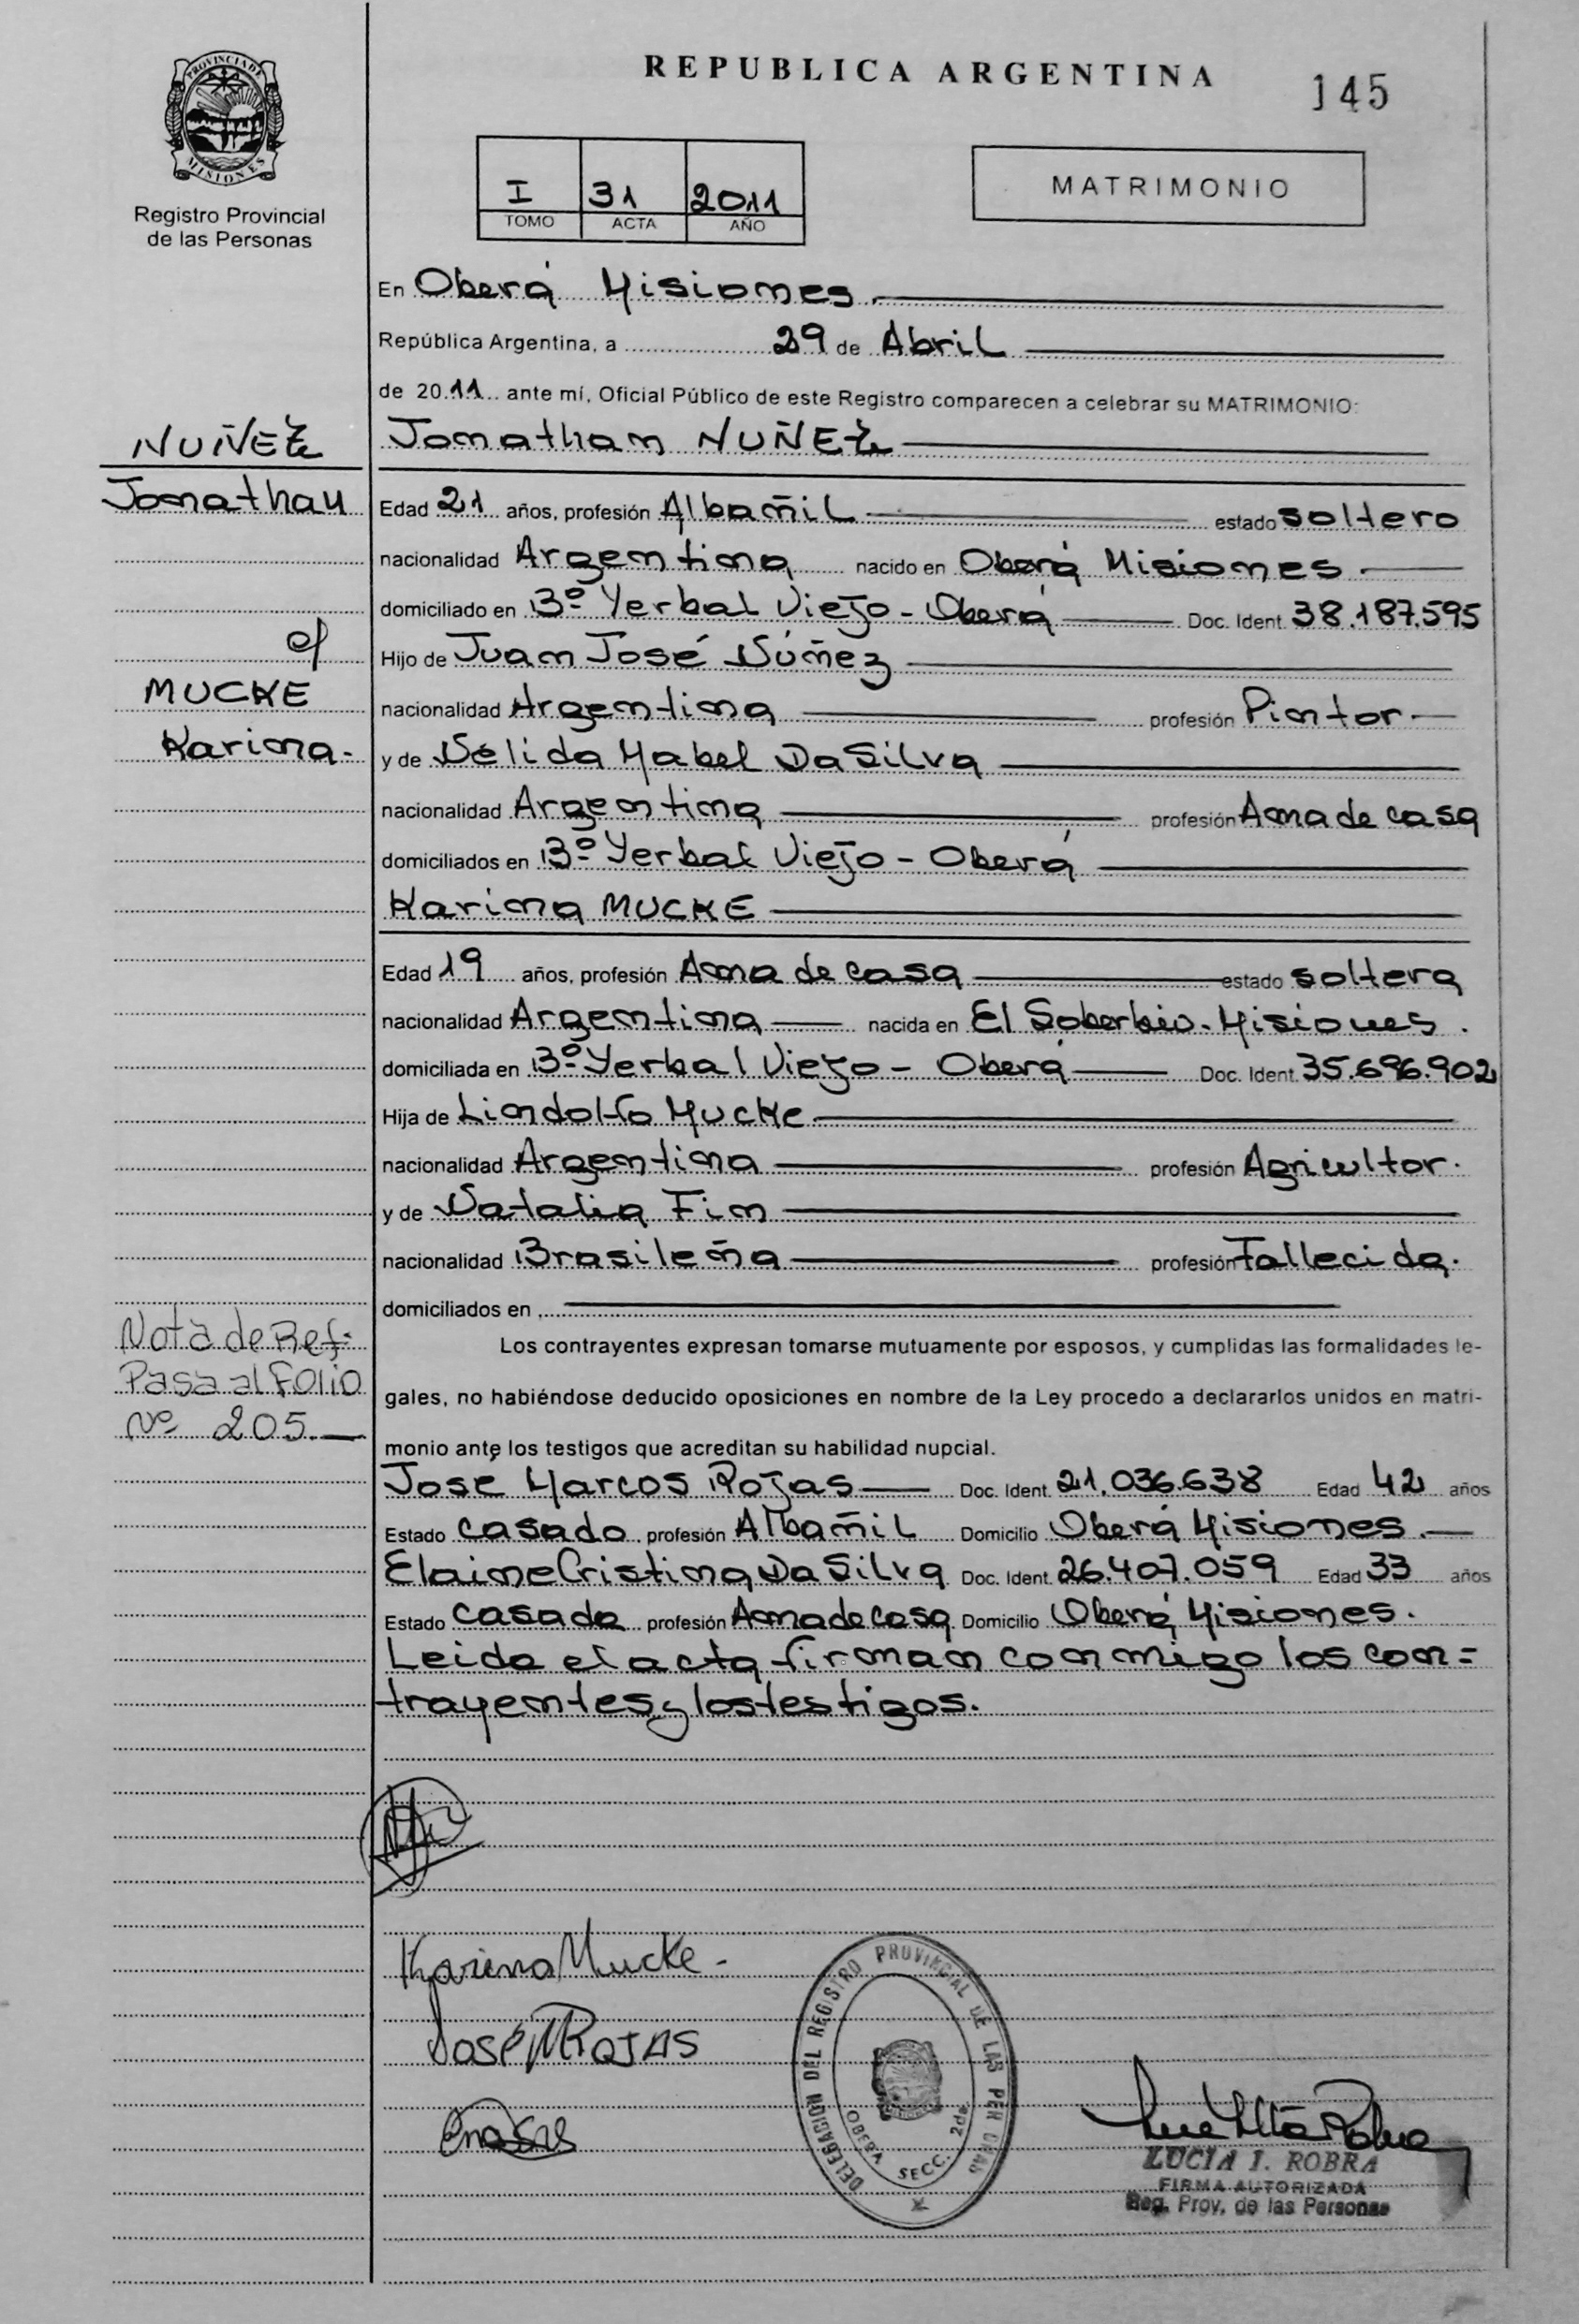 REPUBLICA ARGENTINA
145
PROVINCIA DE
MISIONES
Registro Provincial
de las Personas
I 31 2011
TOMO ACTA AÑO
MATRIMONIO
En Oberá Misiones.
República Argentina, a 29 de Abril
de 2011 ante mí, Oficial Público de este Registro comparecen a celebrar su MATRIMONIO:
NUÑEZ
Jonathan
c/
MUCKE
Karina.
Jonathan NUÑEZ
Edad 21 años, profesión Albañil estado soltero
nacionalidad Argentina nacido en Oberá Misiones.
domiciliado en Bº Yerbal Viejo - Oberá Doc. Ident. 38.187.595
Hijo de Juan José Núñez
nacionalidad Argentina profesión Pintor
y de Nélida Mabel Da Silva
nacionalidad Argentina profesión Ama de casa
domiciliados en Bº Yerbal Viejo - Oberá
Karina MUCKE
Edad 19 años, profesión Ama de casa estado soltera
nacionalidad Argentina nacida en El Soberbio. Misiones.
domiciliada en Bº Yerbal Viejo - Oberá Doc. Ident. 35.696.902
Hija de Lindolfo Mucke
nacionalidad Argentina profesión Agricultor.
y de Natalia Fin
nacionalidad Brasileña profesión Fallecida.
domiciliados en
Nota de Ref.
Pasa al Folio
Nº 205.
Los contrayentes expresan tomarse mutuamente por esposos, y cumplidas las formalidades le-
gales, no habiéndose deducido oposiciones en nombre de la Ley procedo a declararlos unidos en matri-
monio ante los testigos que acreditan su habilidad nupcial.
José Marcos Rojas Doc. Ident. 21.036.638 Edad 42 años
Estado casado profesión Albañil Domicilio Oberá Misiones.
Elaine Cristina Da Silva Doc. Ident. 26.407.059 Edad 33 años
Estado casada profesión Ama de casa Domicilio Oberá Misiones.
Leida el acta firman conmigo los con=
trayentes y los testigos.
Karina Mucke
José M Rojas
DELEGACION DEL REGISTRO PROVINCIAL DE LAS PERSONAS
OBERA SECC. 2da.
LUCIA I. ROBRA
FIRMA AUTORIZADA
Reg. Prov. de las Personas